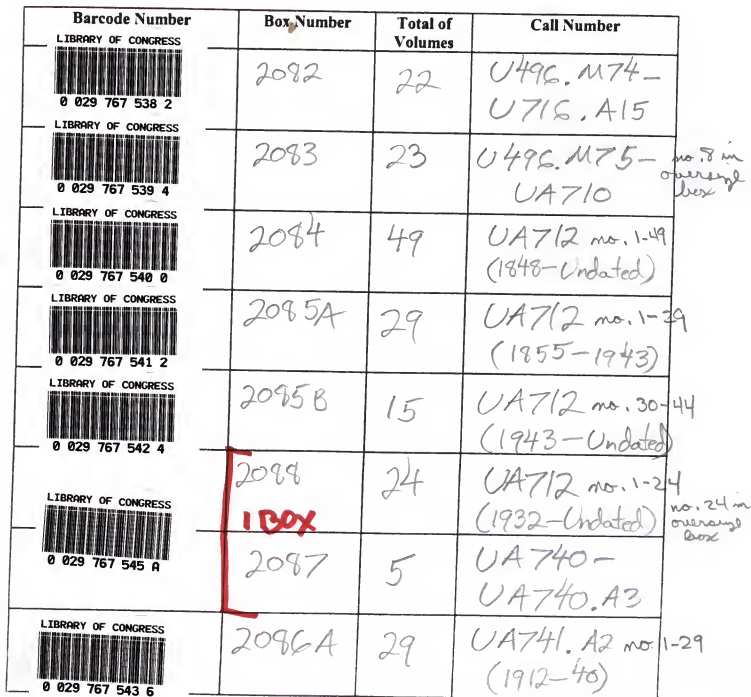 Barcode Number Box Number Total of Volumes Call Number
LIBRARY OF CONGRESS
0 029 767 538 2
2082 22 U496.M74-
U716.A15
LIBRARY OF CONGRESS
0 029 767 539 4
2083 23 U496.M75- no. 8 in
UA710 oversize
box
LIBRARY OF CONGRESS
0 029 767 540 0
2084 49 UA712 no. 1-49
(1848-Undated)
LIBRARY OF CONGRESS
0 029 767 541 2
2085A 29 UA712 no. 1-29
(1855-1943)
LIBRARY OF CONGRESS
0 029 767 542 4
2085B 15 UA712 no. 30-44
(1943-Undated)
LIBRARY OF CONGRESS
0 029 767 545 A
2088 24 UA712 no. 1-24
1 BOX (1932-Undated) no. 24 in
oversize
box
2087 5 UA740-
UA740.A3
LIBRARY OF CONGRESS
0 029 767 543 6
2086A 29 UA741.A2 no. 1-29
(1912-40)